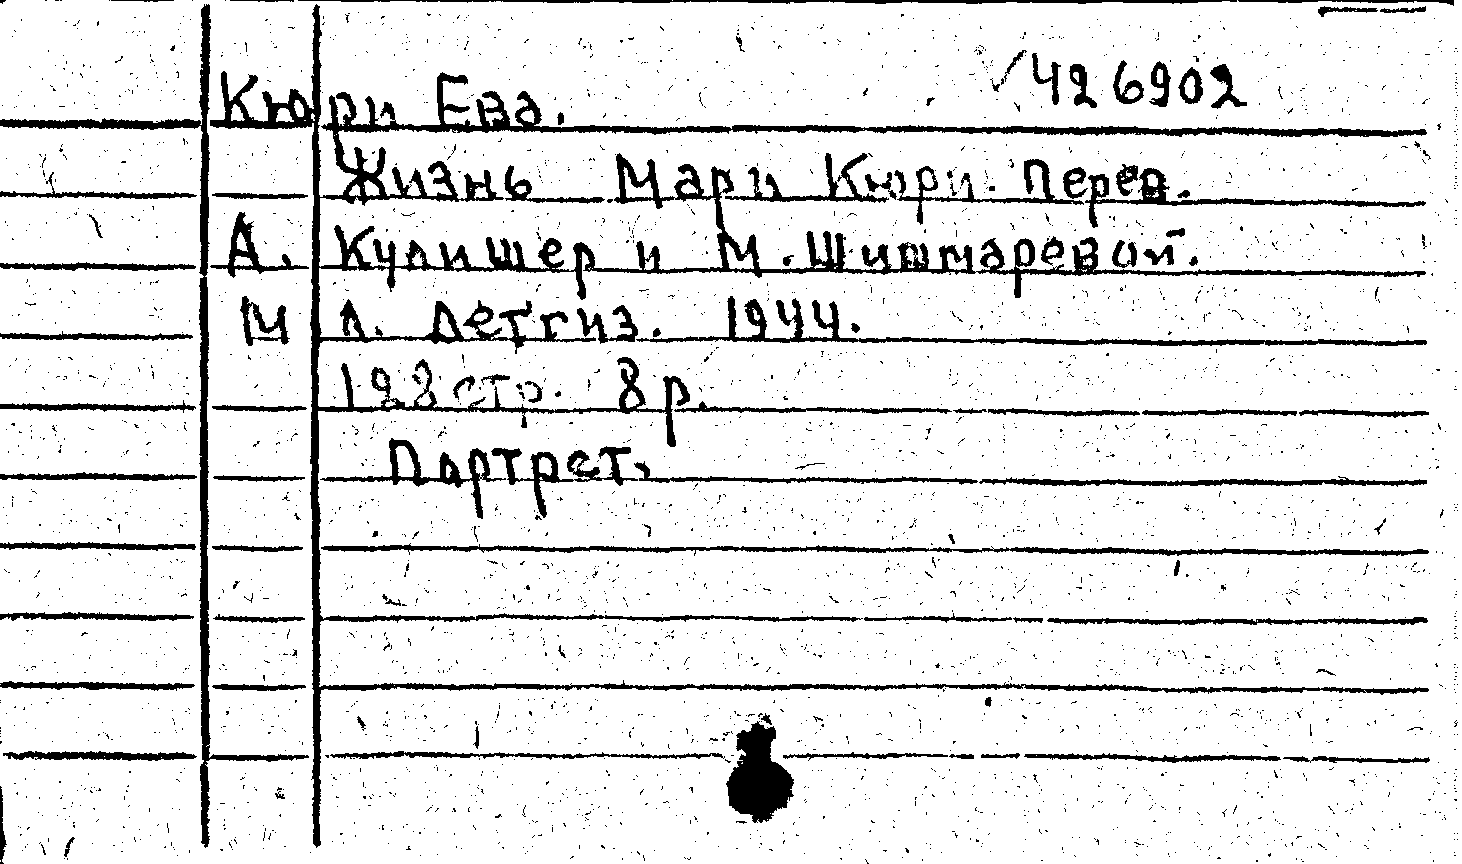 Кюри Ева. 426902
Жизнь Мари Кюри. Перев.
А. Кулишер и М. Шишмаревой.
М Л. Детгиз. 1944.
128 стр. 8 р.
Портрет.